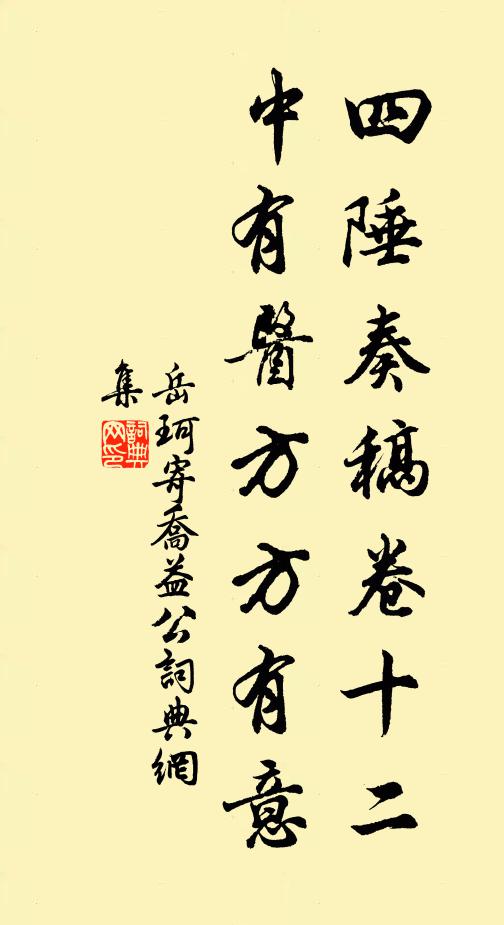 四陲奏稿卷十二
中有醫方方有意
岳珂寄喬益公詞典網
集
詞典
网印